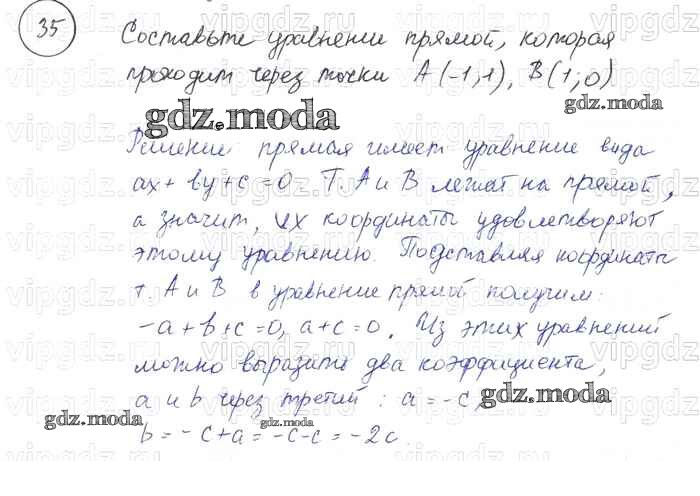 35
Составьте уравнении прямой, которая
проходит через точки A(-1;1), B(1;0)
gdz.moda
gdz.moda
Решение прямая имеет уравнение вида
ax+by+c=0. Т. A и B лежат на прямой,
а значит, их координаты удовлетворяют
этому уравнению. Подставляя координаты
т. A и B в уравнение прямой получим:
-a+b+c=0, a+c=0. Из этих уравнений
можно выразить два коэффициента,
a и b через третий: a=-c,
gdz.moda
gdz.moda
gdz.moda
b=-c+a=-c-c=-2c.
vipgdz